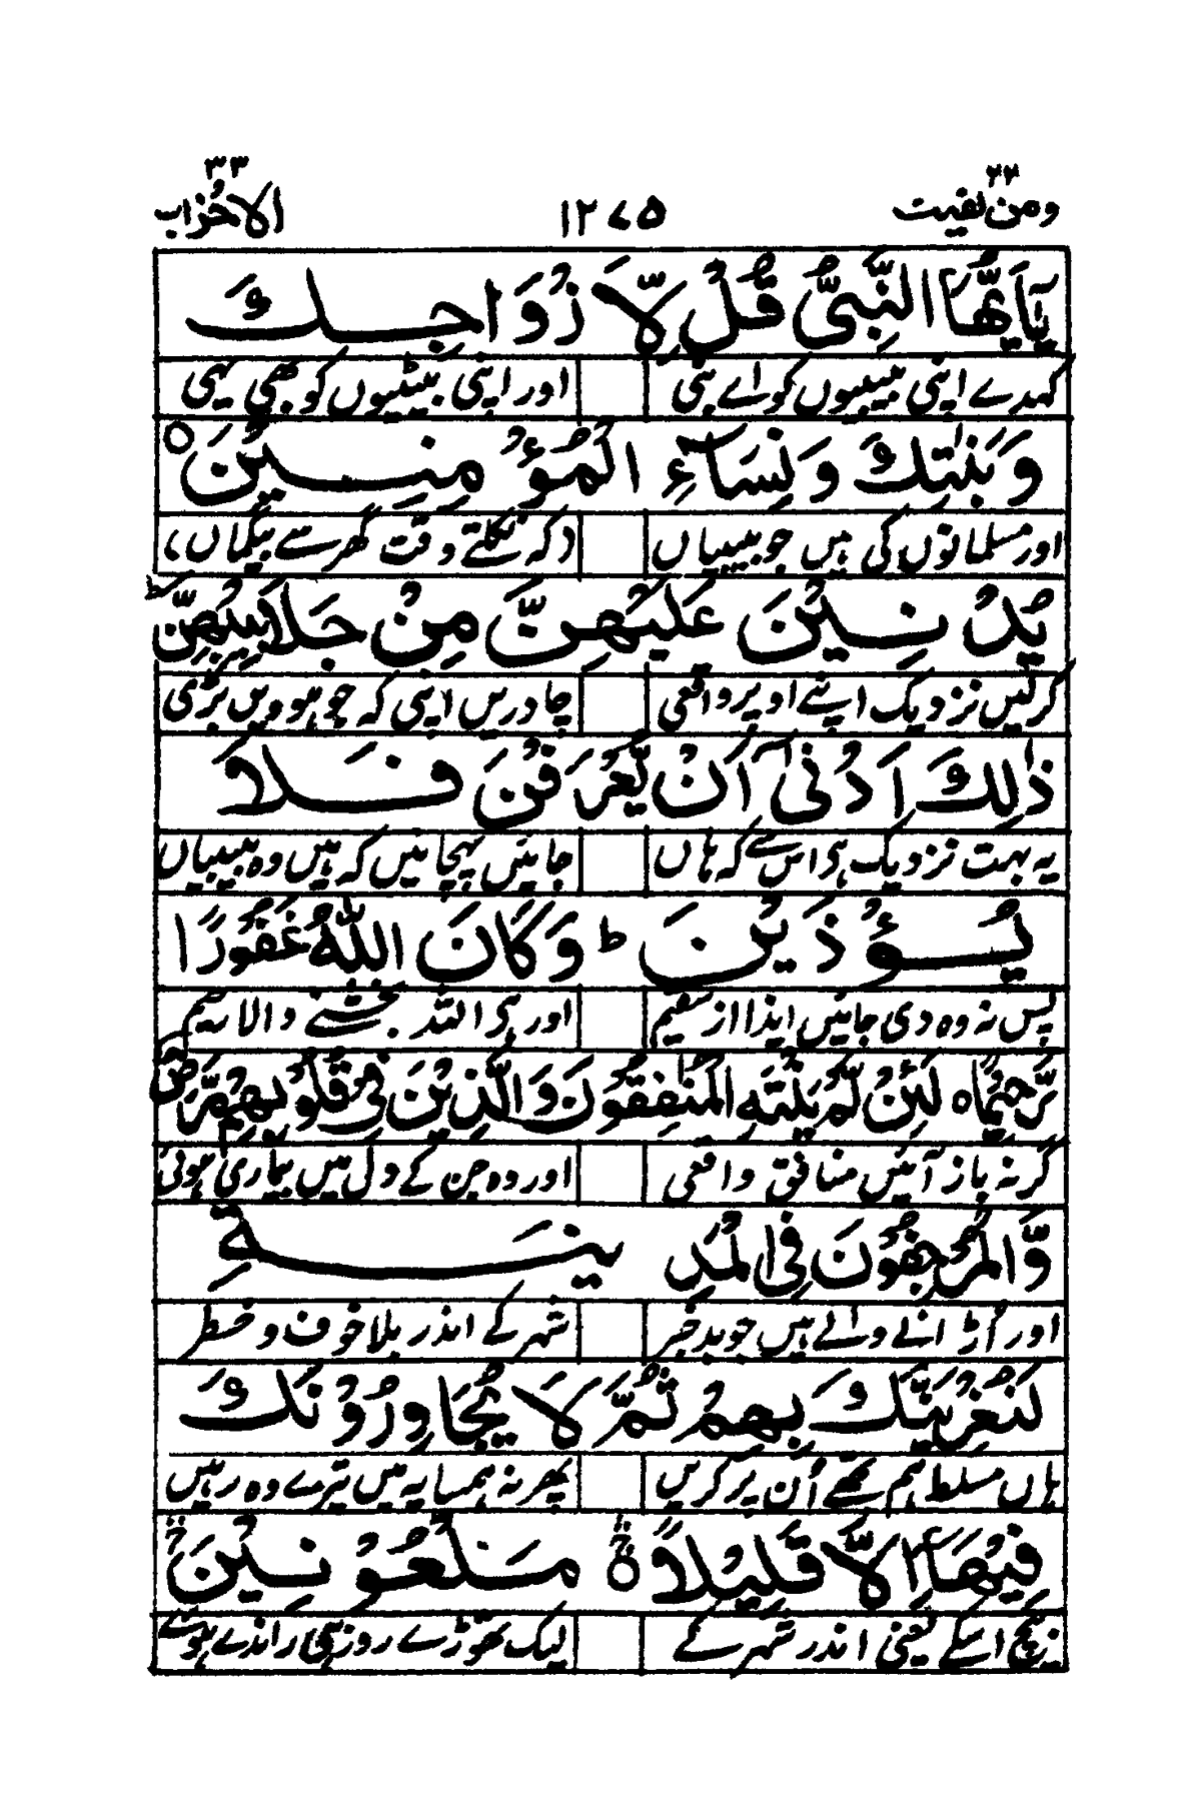 ومن یقنیت ۲۲ ۱۲۷۵ الاحزاب ۳۳
یٰۤاَیُّهَا النَّبِیُّ قُلْ لِّاَزْوَاجِكَ
کہدے اپنی بیبیوں کو اے نبی اور اپنی بیٹیوں کو بھی یہی
وَبَنٰتِكَ وَنِسَآءِ الْمُؤْمِنِیْنَ
اور مسلمانوں کی ہیں جو بیبیاں (کہ نکلتے وقت گھر سے بیگماں،
یُدْنِیْنَ عَلَیْهِنَّ مِنْ جَلَابِیْبِهِنَّ ؕ
کرلیں نزدیک اپنے اوپر واقعی چادریں اپنی کہ جو ہوویں بڑی
ذٰلِكَ اَدْنٰۤی اَنْ یُّعْرَفْنَ فَلَا
یہ بہت نزدیک ہی اس سے کہ ہاں جائیں پہچانیں کہ ہیں وہ بیبیاں
یُؤْذَیْنَ ؕ وَكَانَ اللّٰهُ غَفُوْرًا
پس نہ وہ دی جائیں ایذا از سقیم اور ہی اللہ بخشنے والا رحیم
رَّحِیْمًا ۵ لَئِنْ لَّمْ یَنْتَهِ الْمُنٰفِقُوْنَ وَالَّذِیْنَ فِیْ قُلُوْبِهِمْ مَّرَضٌ
گر نہ باز آئیں منافق واقعی اور وہ جن کے دل میں بیماری ہوئی
وَّالْمُرْجِفُوْنَ فِی الْمَدِیْنَةِ
اور اڑانے والے ہیں جو بد خبر شہر کے اندر بلا خوف و خطر
لَنُغْرِیَنَّكَ بِهِمْ ثُمَّ لَا یُجَاوِرُوْنَكَ
ہاں مسلط ہم تجھے اُن پر کریں پھر نہ ہمسایہ میں تیرے وہ رہیں
فِیْهَاۤ اِلَّا قَلِیْلًا ۵ مَلْعُوْنِیْنَ
بیچ اسکے یعنی اندر شہر کے لیک تھوڑے روز ہی راندے ہوئے